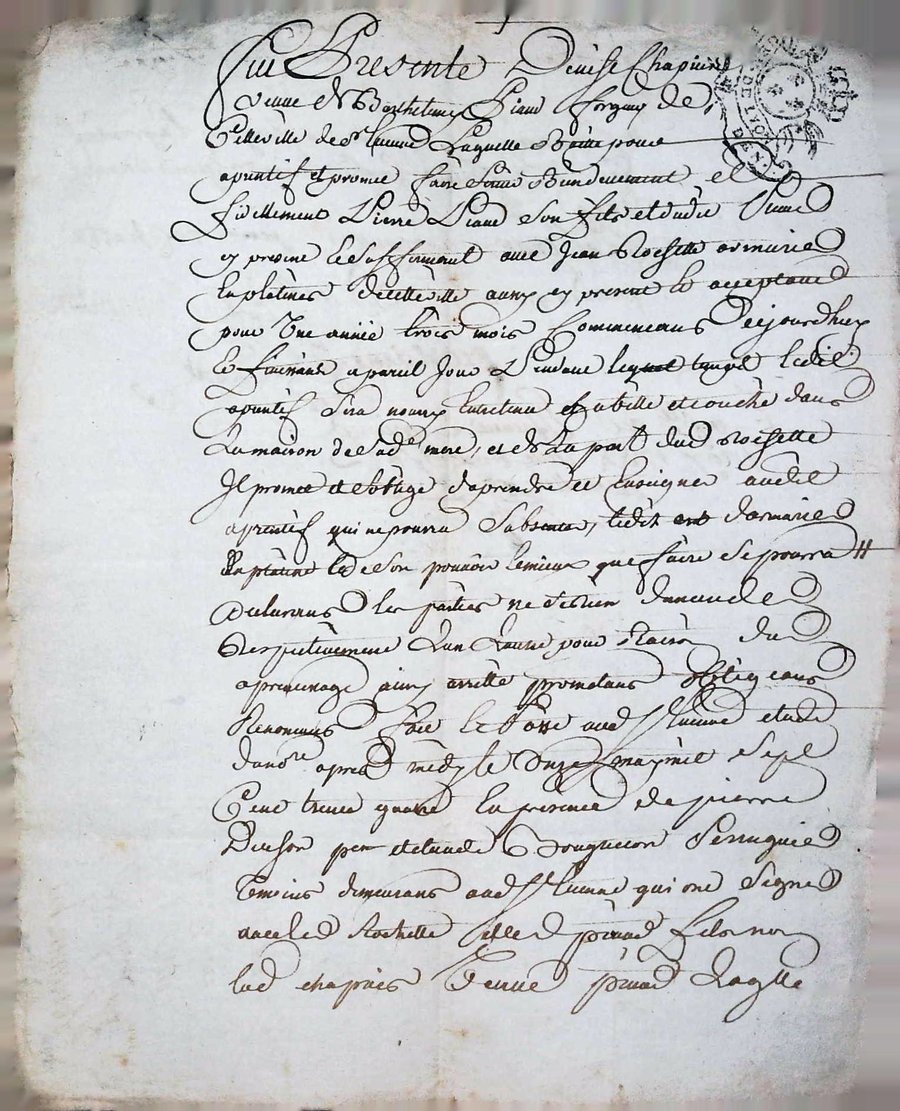 Fut Presente Denise Chapuis
veuve de Barthelemy Piaud forgeur de
Cette ville de St Etienne Laquelle Baille pour
aprentif et promet faire servir Bienduement et
fidellement Pierre Piaud son fils et dudit
cy present le susformant avec Jean Rochette armurier
En platines de cette ville aussy cy present et acceptant
pour Une année trois mois Commencans Cejourdhuy
Et finissant a pareil Jour Pendant lequel temps ledit
aprentif sera nourry Entretenu et couché dans
La maison de sad mere, et de La part dud Rochette
Il promet et soblige daprendre et Enseigner audit
aprentif qui ne pourra sabsenter, ledit art darmurier
En platine et de son pouvoir le mieux que faire se pourra
declarans les parties ne se rien demander
Respectivement Lun Lautre pour Raison dud
aprentissage ainsy arretté promettans Obligeans
Renoncans fait et Passé aud St Etienne etude
dud nore apres midy le Onze may mil sept
Cent trente quatre En presence de pierre
perr et claude Perruquier
Temoins demeurans aud St Etienne qui ont Signé
avec led Rochette et led piaud fils non
lad chapuis veuve piaud Laqlle